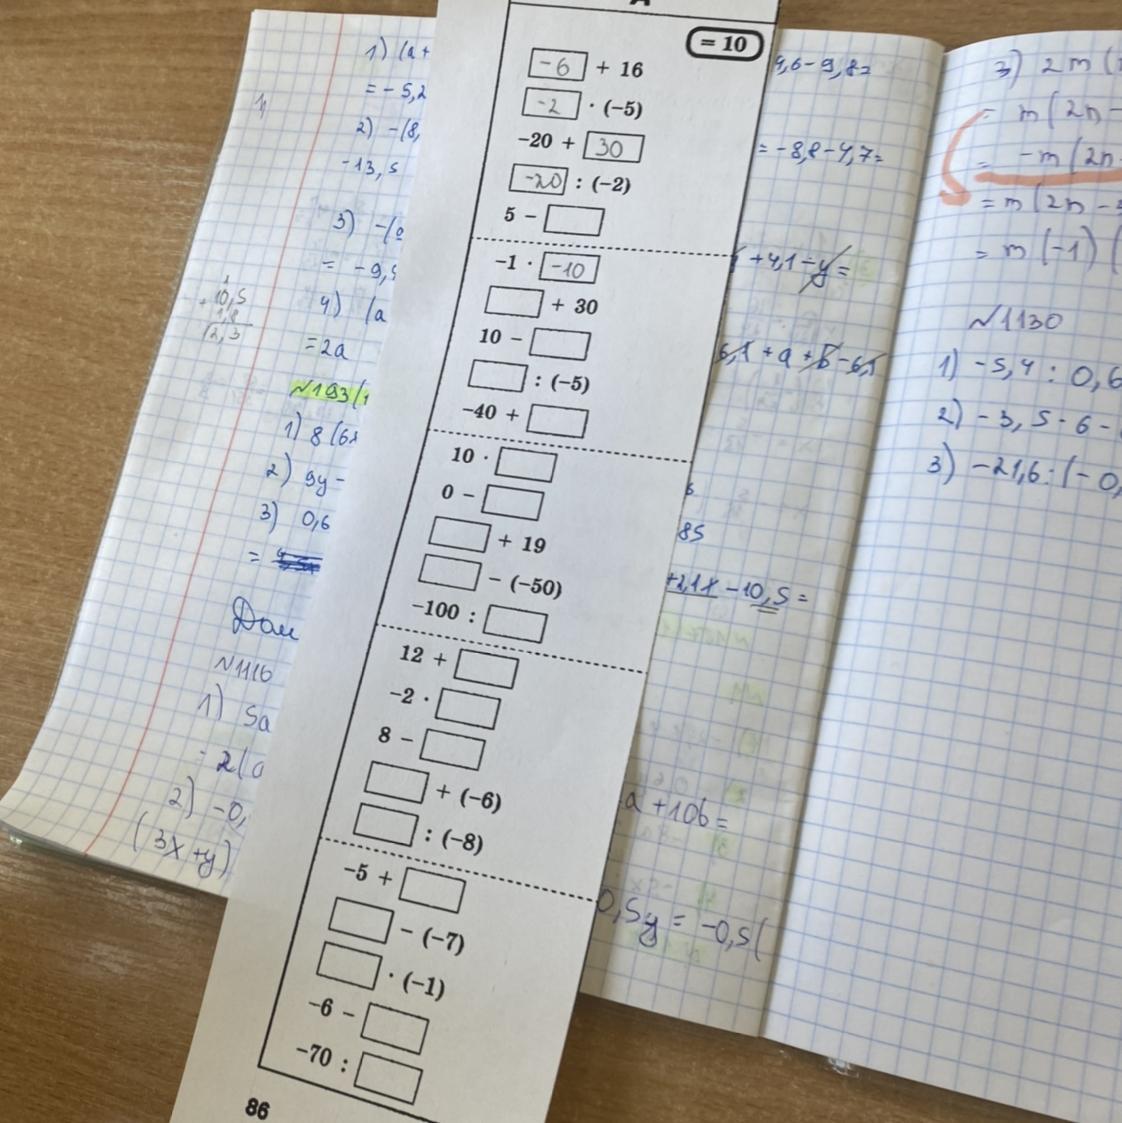 A
= 10
-6 + 16
-2 · (–5)
–20 + 30
-20 : (–2)
5 –
–1 · -10
+ 30
10 –
: (–5)
–40 +
10 ·
0 –
+ 19
– (–50)
–100 :
12 +
–2 ·
8 –
+ (–6)
: (–8)
–5 +
– (–7)
· (–1)
–6 –
–70 :
86
1) (a+
= - 5,2
2) -(8,
-13,5
3) -(
= -9,
4) (a
= 2a
10,5
1,8
12,3
№1193(1
1) 8(6x
2) 9y -
3) 0,6
=
Дом
№1116
1) 5a
= 2(a
2) -0,
(3x+y)
9,6-9,8=
= -8,8-4,7=
+4,1-y=
6,1+a+b-6,1
85
+2,1x-10,5=
a+10b=
0,5y = -0,5(
3) 2m(
= m(2n-
= -m(2n
= m(2n-
= m(-1)(
№1130
1) -5,4:0,6
2) -3,5-6-
3) -21,6:(-0,